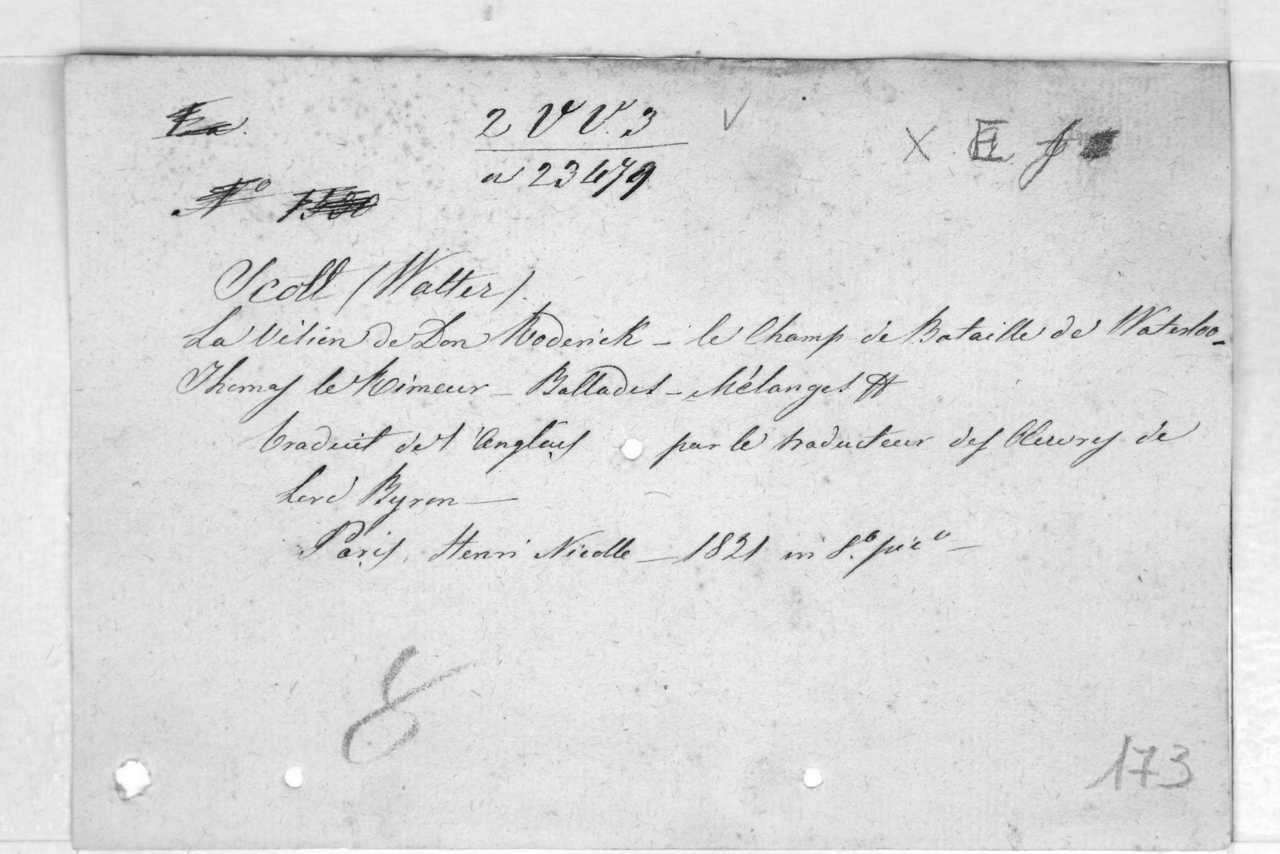 2 V V. 3
a 23479
X
Nº 1580
Scott (Walter).
La Vision de Don Roderick – le Champ de Bataille de Waterloo –
Thomas le Rimeur – Ballades – Mélanges
traduit de l'Anglais par le traducteur des Oeuvres de
Lord Byron –
Paris, Henri Nicolle – 1821 in 8.º
8
173